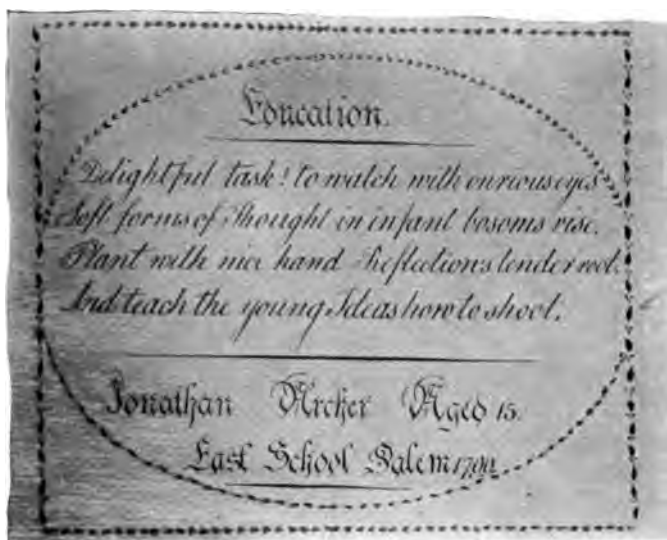 Education.
Delightful task! to watch with curious eyes
Soft forms of Thought in infant bosoms rise.
Plant with nice hand Reflections tender root.
And teach the young Ideas how to shoot.
Jonathan Archer Aged 15.
East School Salem 1790